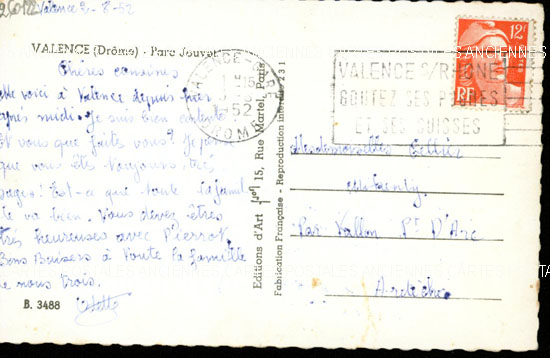 Valence 9-8-52
VALENCE (Drôme) - Parc Jouvet
Chères cousines
voici à Valence depuis hier
après midi. Je suis bien contente
Et vous que faites vous? Je pense
que vous êtes toujours très
sages! Est-ce que toute la famil
le va bien. Vous devez êtres
très heureuses avec Pierrot.
Bons Baisers à toute la famille
de nous trois.
Odette
B. 3488
Editions d'Art "Jol" 15, Rue Martel, Paris
Fabrication Française - Reproduction interdite 231
VALENCE-GARE
15
52
DROME
VALENCE S/RHONE
GOUTEZ SES PECHES
ET SES SUISSES
12F
RF
Mesdemoiselles
Par Vallon Pt D'Arc
Ardèche